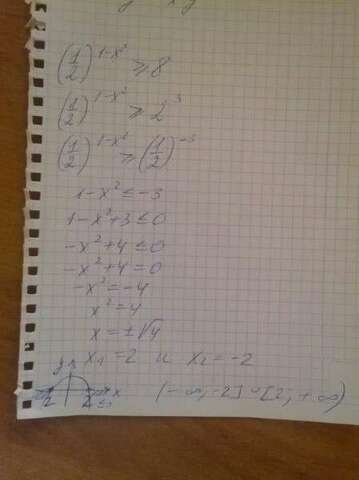 (1/2)^(1-x²) ≥ 8
(1/2)^(1-x²) ≥ 2³
(1/2)^(1-x²) ≥ (1/2)^(-3)
1-x² ≤ -3
1-x²+3 ≤ 0
-x²+4 ≤ 0
-x²+4 = 0
-x² = -4
x² = 4
x = ±√4
x₁ = 2 и x₂ = -2
y x (-∞; -2] ∪ [2; +∞)